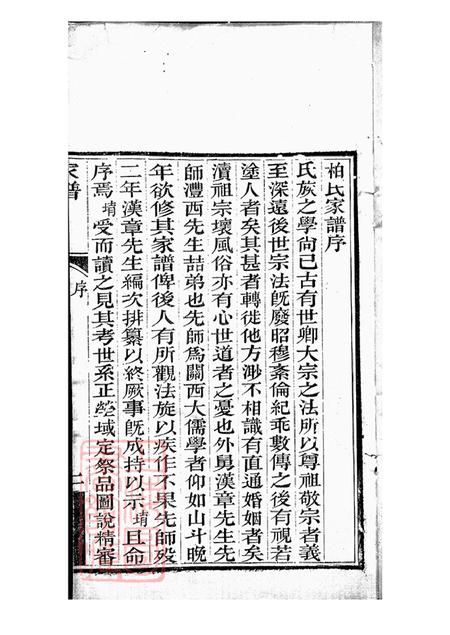 柏氏家譜序
氏族之學尚已古有世卿大宗之法所以尊祖敬宗者義
至深遠後世宗法既廢昭穆紊倫紀乖數傳之後有視若
塗人者矣其甚者轉徙他方渺不相識有直通婚姻者矣
瀆祖宗壞風俗亦有心世道者之憂也外舅漢章先生先
師灃西先生喆弟也先師為關西大儒學者仰如山斗晚
年欲修其家譜俾後人有所觀法旋以疾作不果先師歿
二年漢章先生編次排纂以終厥事既成持以示堉且命
序焉堉受而讀之見其考世系正塋域定祭品圖說精審
家譜
序
一